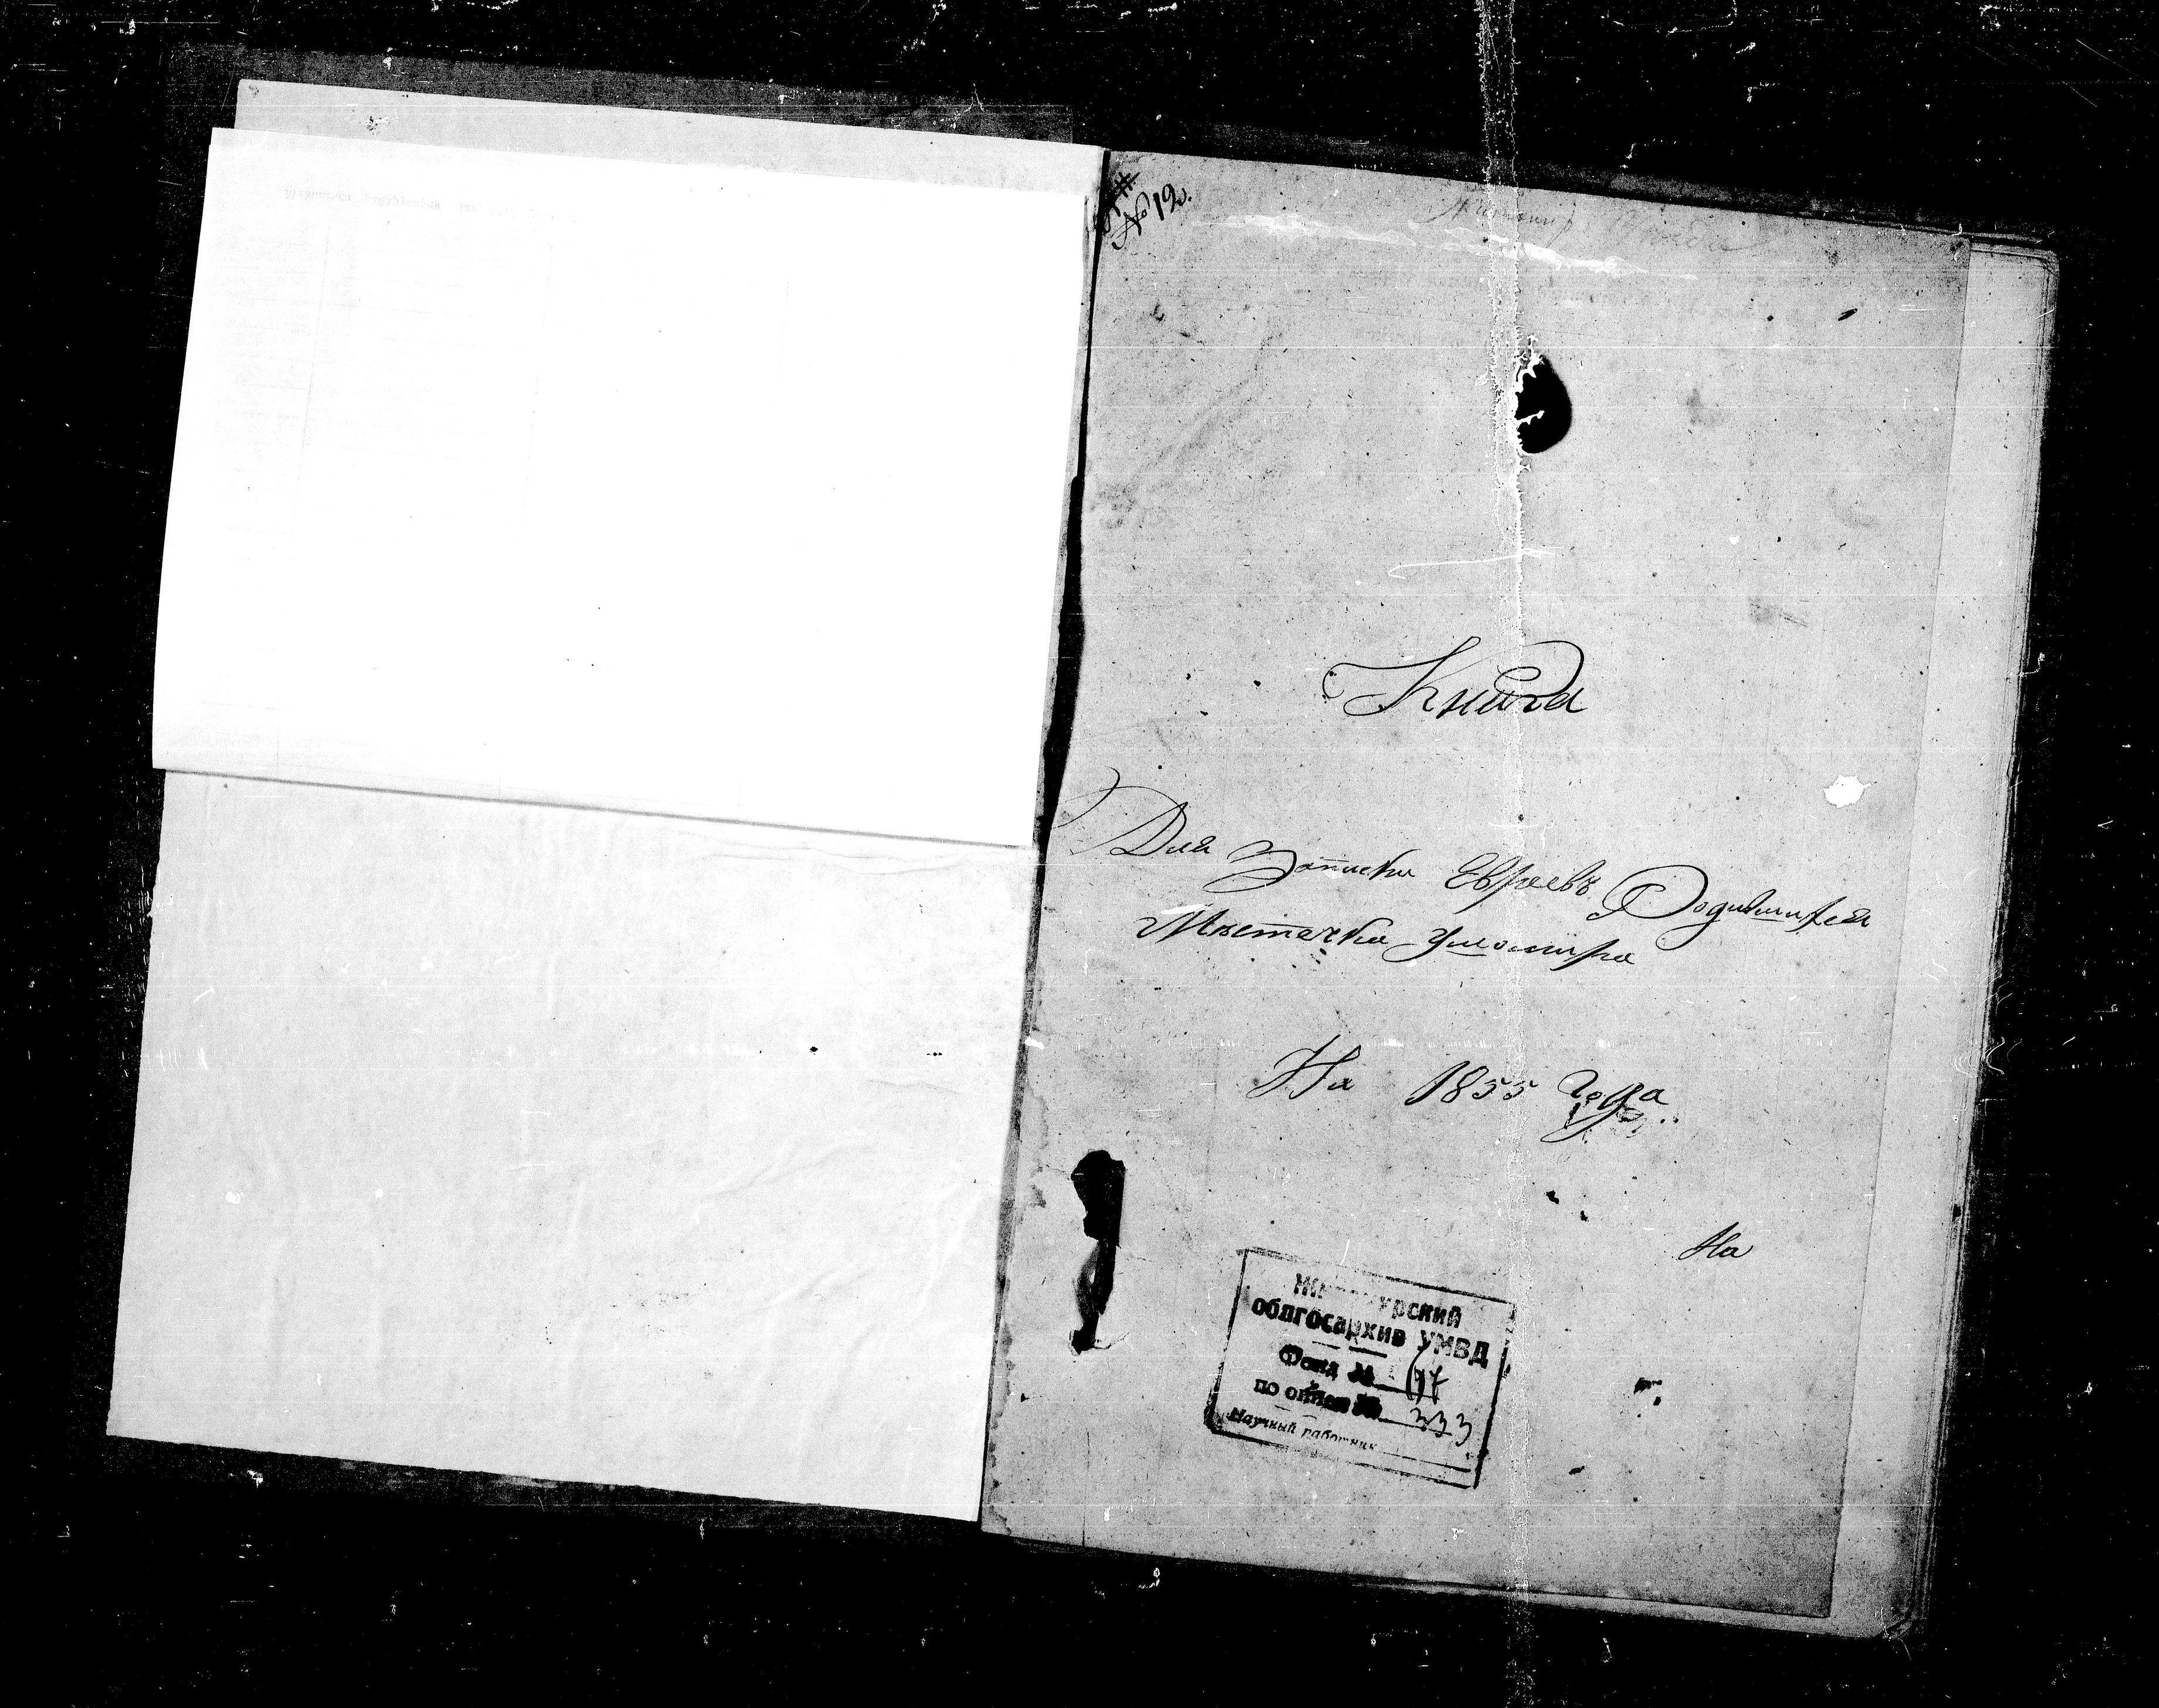 № 12.
Книга
Для Записки Евреевъ Родившихся
Мѣстечка Ушомира
На 1855 Года
На
облгосархив УМВД
Фонд №
по описи № 333
Научный работник